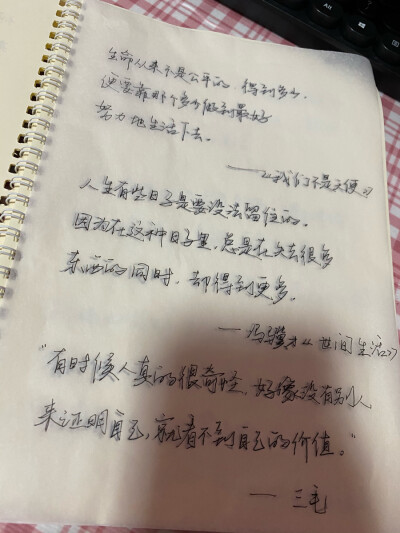 生命从来不是公平的，得到多少，
便要靠那个多少做到最好
努力地生活下去。
——《我们不是天使》
人生有些日子是要没法留住的。
因为在这种日子里，总是在失去很多
东西的同时，却得到更多。
——冯骥才《世间生活》
"有时候人真的很奇怪，好像没有别人
来证明自己，就看不到自己的价值。"
——三毛